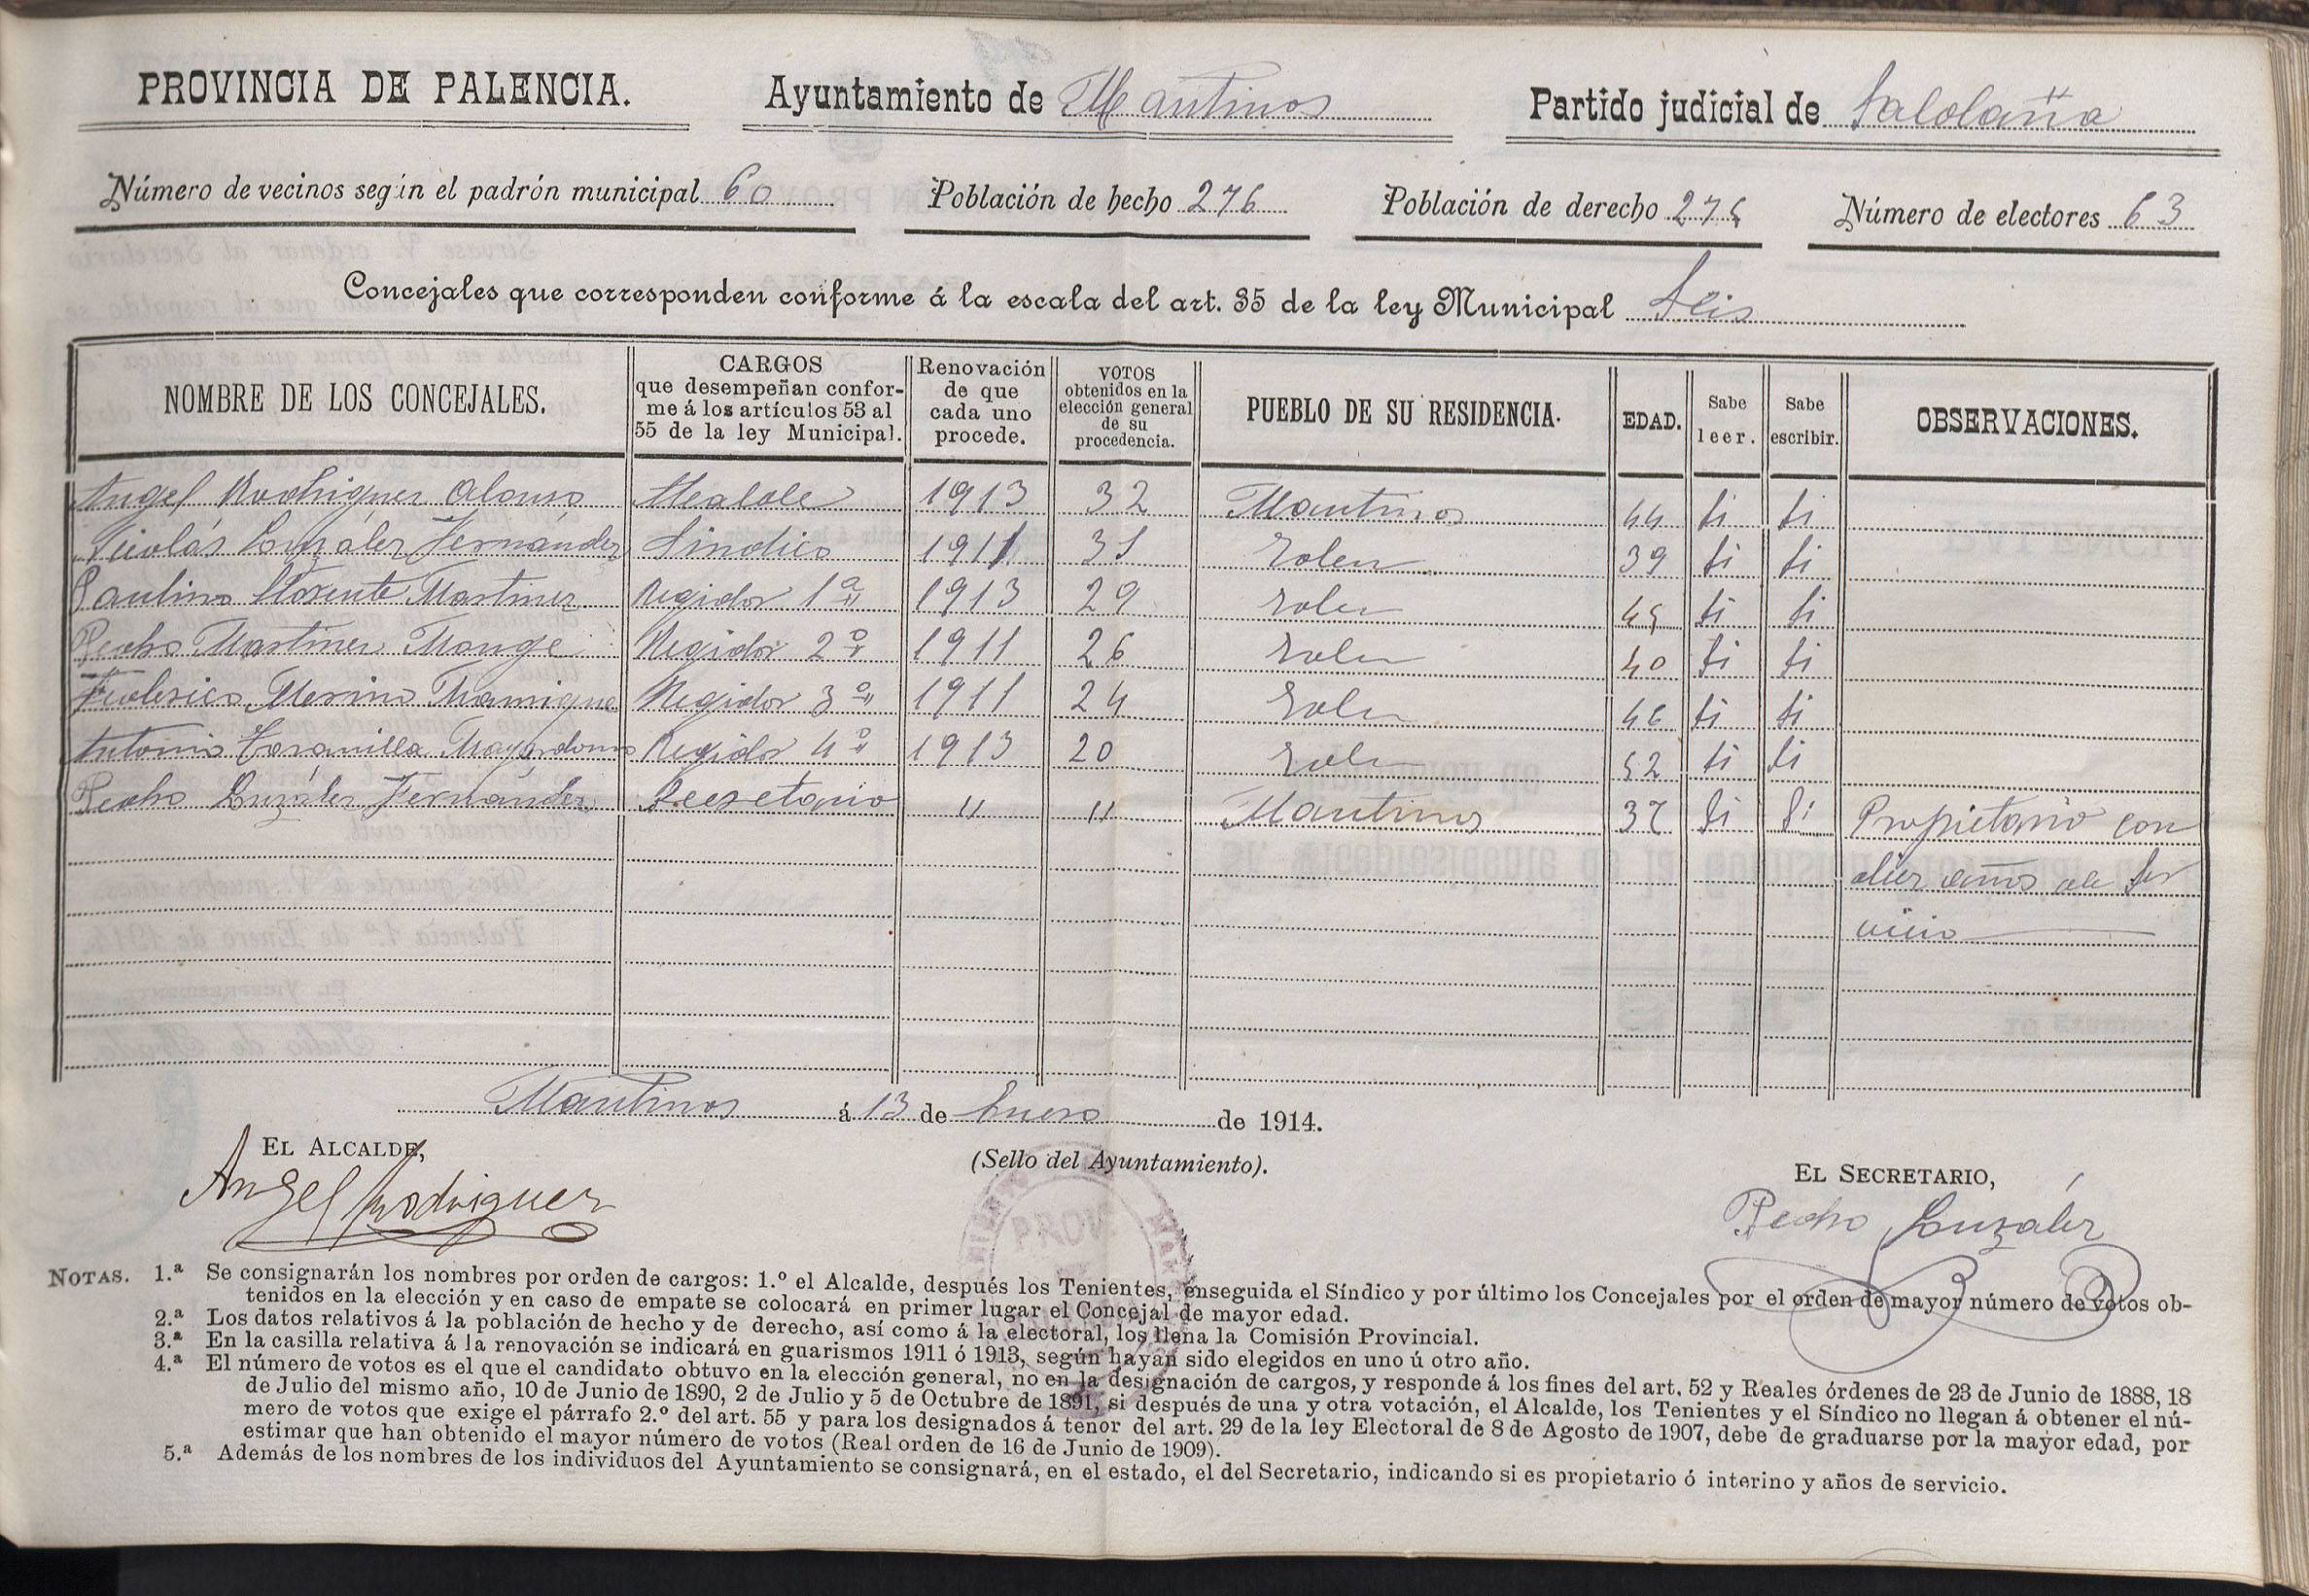 PROVINCIA DE PALENCIA. Ayuntamiento de Mantinos Partido judicial de Saldaña
Número de vecinos según el padrón municipal 60 Población de hecho 276 Población de derecho 275 Número de electores 63
Concejales que corresponden conforme á la escala del art. 35 de la ley Municipal Seis
NOMBRE DE LOS CONCEJALES. CARGOS que desempeñan conforme á los artículos 53 al 55 de la ley Municipal. Renovación de que cada uno procede. VOTOS obtenidos en la elección general de su procedencia. PUEBLO DE SU RESIDENCIA. EDAD. Sabe leer. Sabe escribir. OBSERVACIONES.
Angel Rodriguez Alonso Alcalde 1913 32 Mantinos 44 Si Si
Nicolás González Fernández Sindico 1911 31 Idem 39 Si Si
Paulino Llorente Martinez Regidor 1º 1913 29 Idem 45 Si Si
Pedro Martinez Monge Regidor 2º 1911 26 Idem 40 Si Si
Federico Merino Regidor 3º 1911 24 Idem 46 Si Si
Antonio Taranilla Mayordomo Regidor 4º 1913 20 Idem 52 Si Si
Pedro González Fernández Secretario " " Mantinos 37 Si Si Propietario con
diez años de ser
vicio
Mantinos á 13 de Enero de 1914.
EL ALCALDE, (Sello del Ayuntamiento). EL SECRETARIO,
Angel Rodriguez Pedro González
PROV
NOTAS. 1.ª Se consignarán los nombres por orden de cargos: 1.º el Alcalde, después los Tenientes, enseguida el Síndico y por último los Concejales por el orden de mayor número de votos ob-
tenidos en la elección y en caso de empate se colocará en primer lugar el Concejal de mayor edad.
2.ª Los datos relativos á la población de hecho y de derecho, así como á la electoral, los llena la Comisión Provincial.
3.ª En la casilla relativa á la renovación se indicará en guarismos 1911 ó 1913, según hayan sido elegidos en uno ú otro año.
4.ª El número de votos es el que el candidato obtuvo en la elección general, no en la designación de cargos, y responde á los fines del art. 52 y Reales órdenes de 23 de Junio de 1888, 18
de Julio del mismo año, 10 de Junio de 1890, 2 de Julio y 5 de Octubre de 1891, si después de una y otra votación, el Alcalde, los Tenientes y el Síndico no llegan á obtener el nú-
mero de votos que exige el párrafo 2.º del art. 55 y para los designados á tenor del art. 29 de la ley Electoral de 8 de Agosto de 1907, debe de graduarse por la mayor edad, por
estimar que han obtenido el mayor número de votos (Real orden de 16 de Junio de 1909).
5.ª Además de los nombres de los individuos del Ayuntamiento se consignará, en el estado, el del Secretario, indicando si es propietario ó interino y años de servicio.